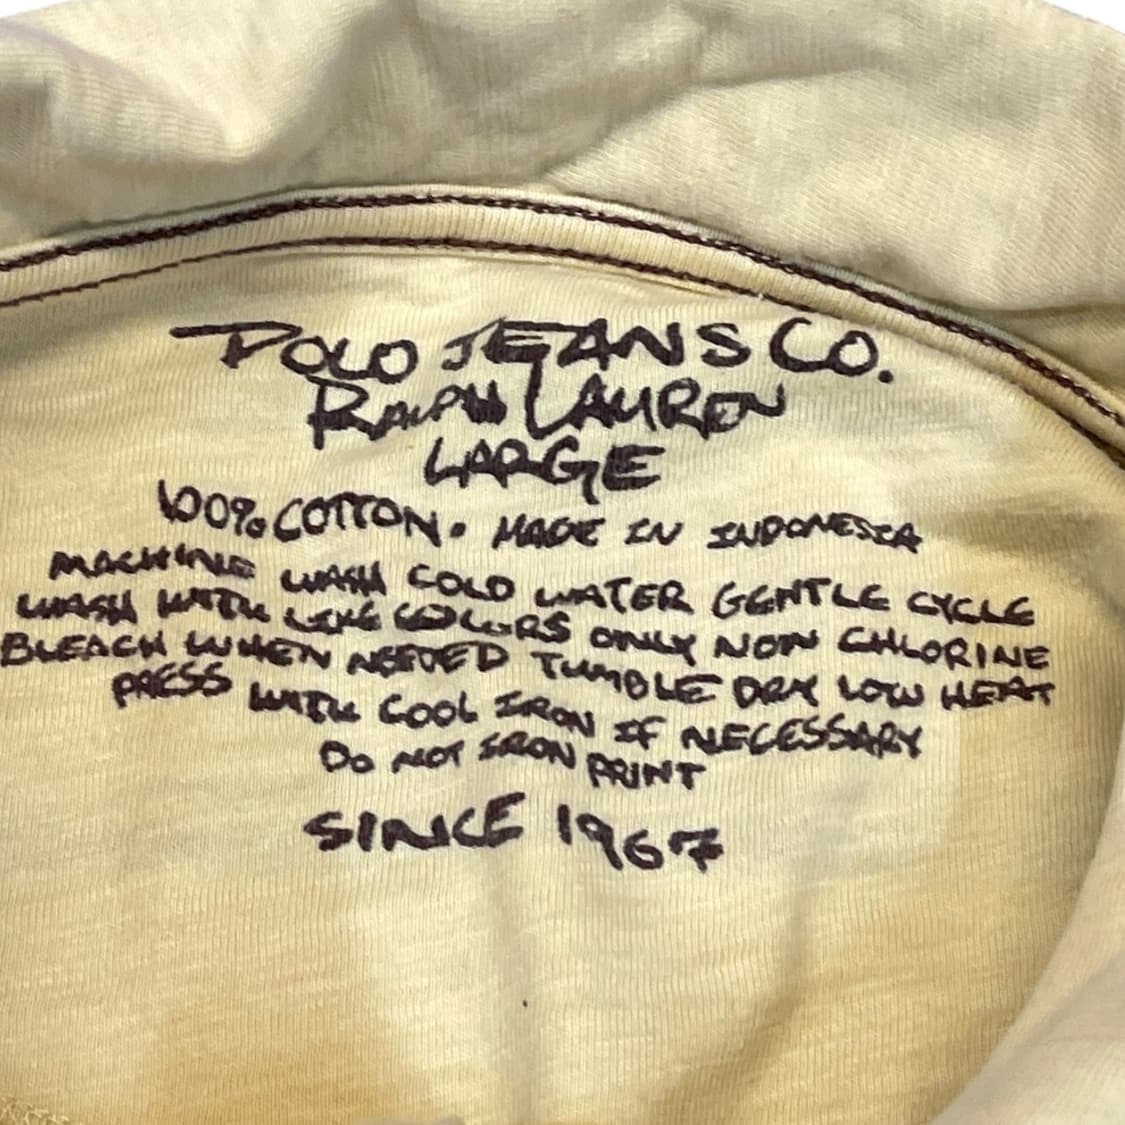 POLO JEANS CO.
RALPH LAUREN
LARGE
100% COTTON. MADE IN INDONESIA
MACHINE WASH COLD WATER GENTLE CYCLE
WASH WITH LIKE COLORS ONLY NON CHLORINE
BLEACH WHEN NEEDED TUMBLE DRY LOW HEAT
PRESS WITH COOL IRON IF NECESSARY
DO NOT IRON PRINT
SINCE 1967